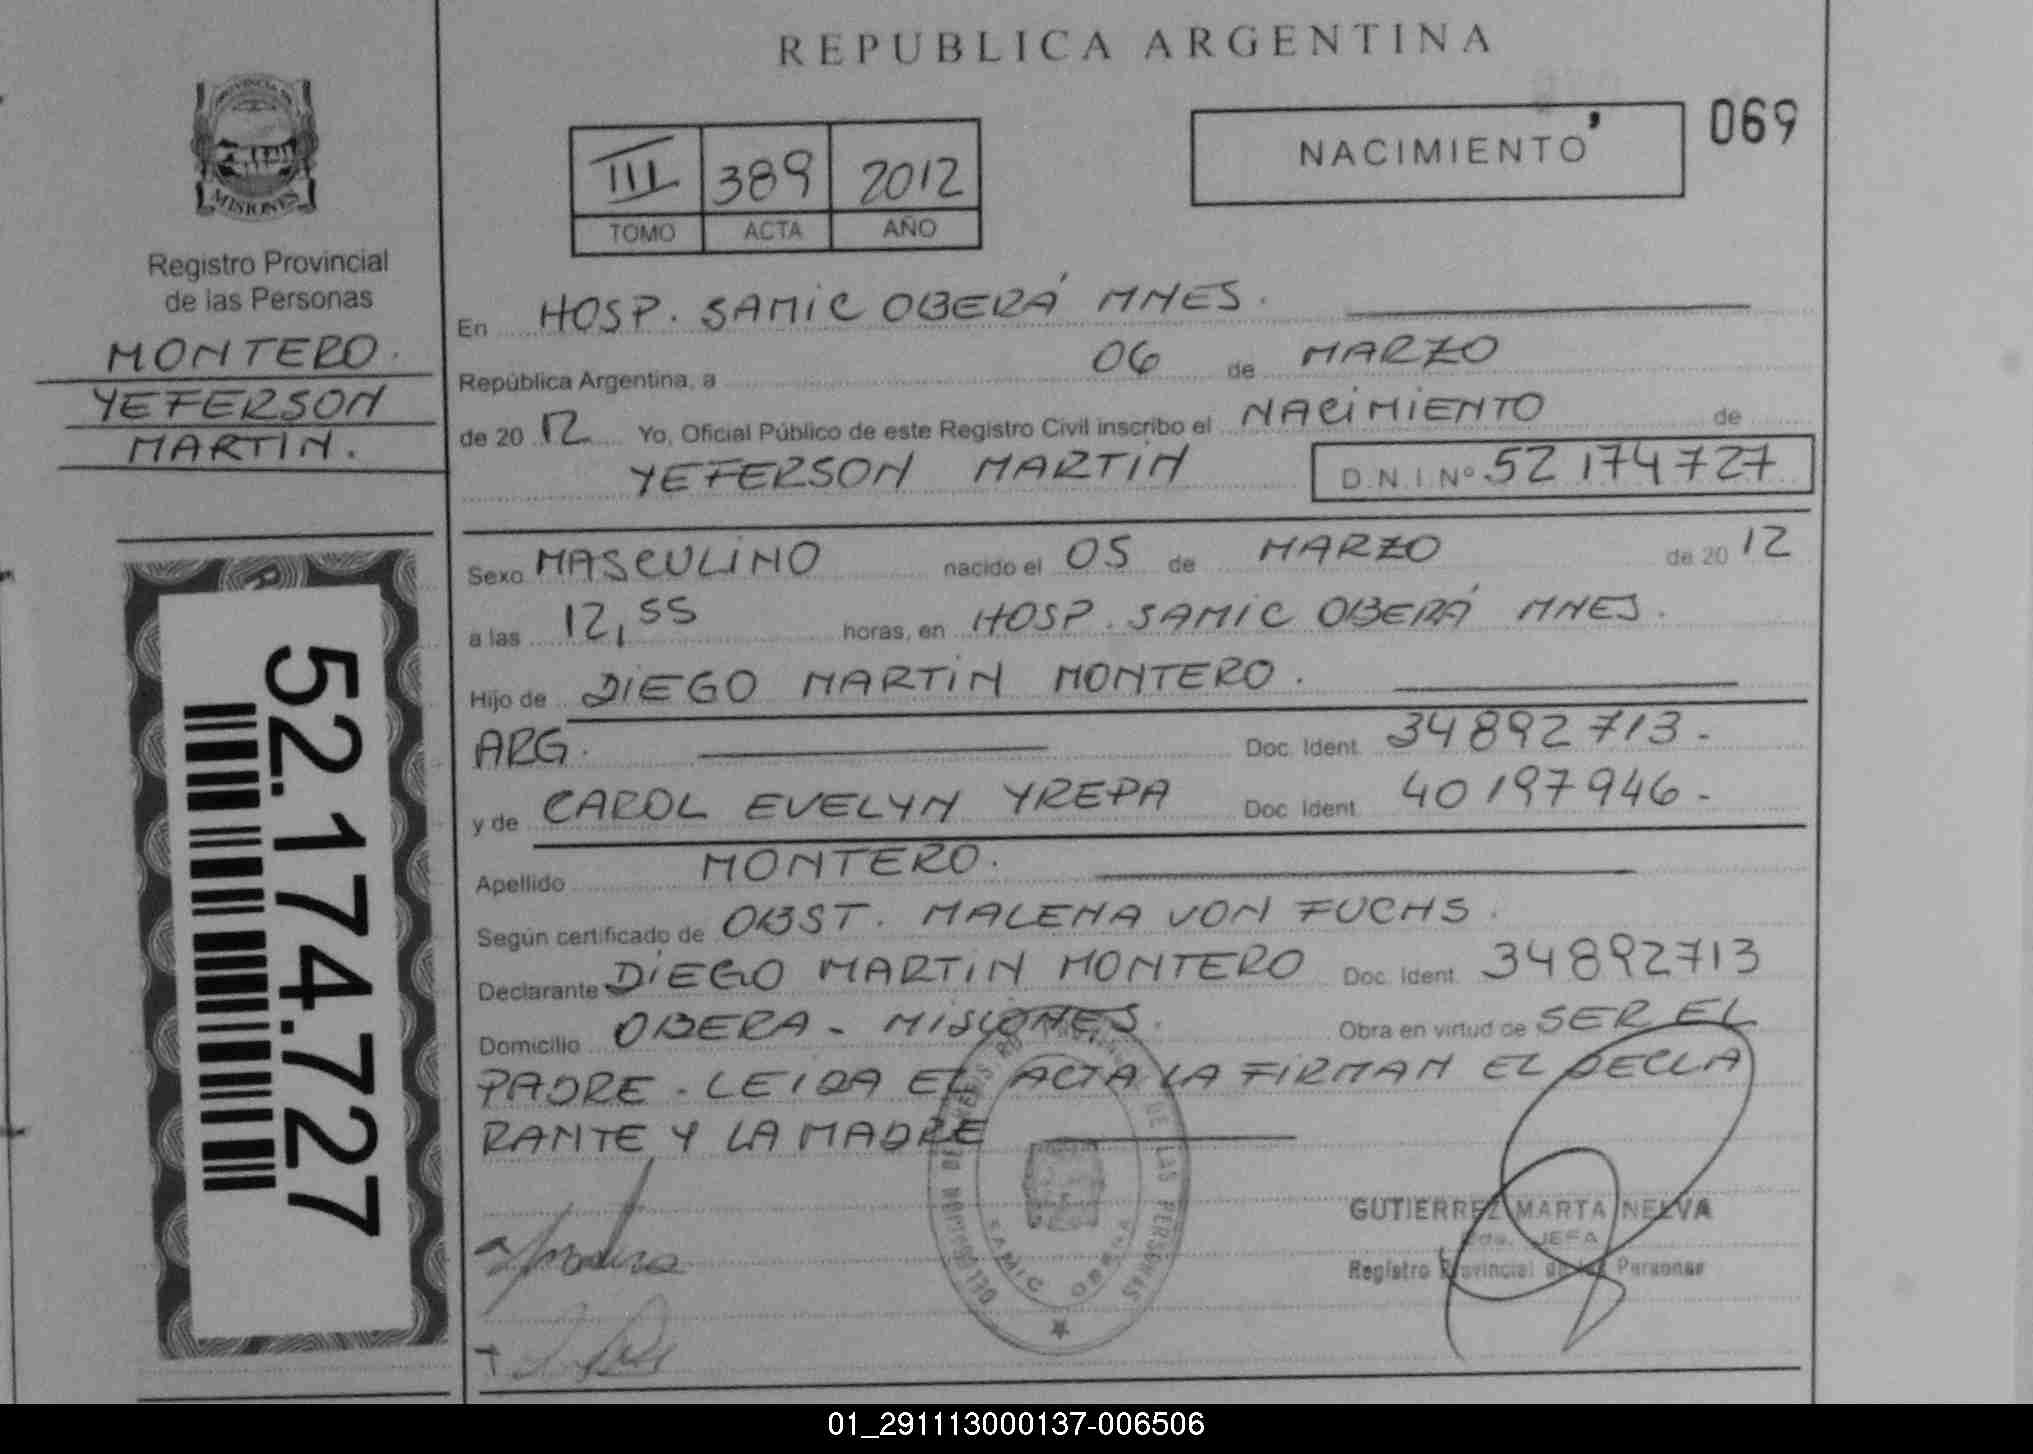 REPUBLICA ARGENTINA
PROVINCIA DE
MISIONES
Registro Provincial
de las Personas
MONTERO.
YEFERSON
MARTIN.
52.174.727
III 389 2012
TOMO ACTA AÑO
NACIMIENTO
069
En HOSP. SAMIC OBERÁ MNES.
República Argentina, a 06 de MARZO
de 20 12 Yo, Oficial Público de este Registro Civil inscribo el NACIMIENTO de
YEFERSON MARTIN D.N.I. Nº 52 174 727
Sexo MASCULINO nacido el 05 de MARZO de 20 12
a las 12,55 horas, en HOSP. SAMIC OBERÁ MNES.
Hijo de DIEGO MARTIN MONTERO.
ARG. Doc. Ident. 34892713.-
y de CAROL EVELYN YREPA Doc. Ident. 40197946-
Apellido MONTERO.
Según certificado de OBST. MALENA VON FUCHS.
Declarante DIEGO MARTIN MONTERO Doc. Ident. 34892713
Domicilio OBERA - MISIONES. Obra en virtud de SER EL
PADRE - LEIDA EL ACTA LA FIRMAN EL DECLA
RANTE Y LA MADRE
DE LAS PERSONAS
SAMIC OBERA
GUTIERREZ MARTA NELVA
JEFA
Registro Provincial de las Personas
01_291113000137-006506